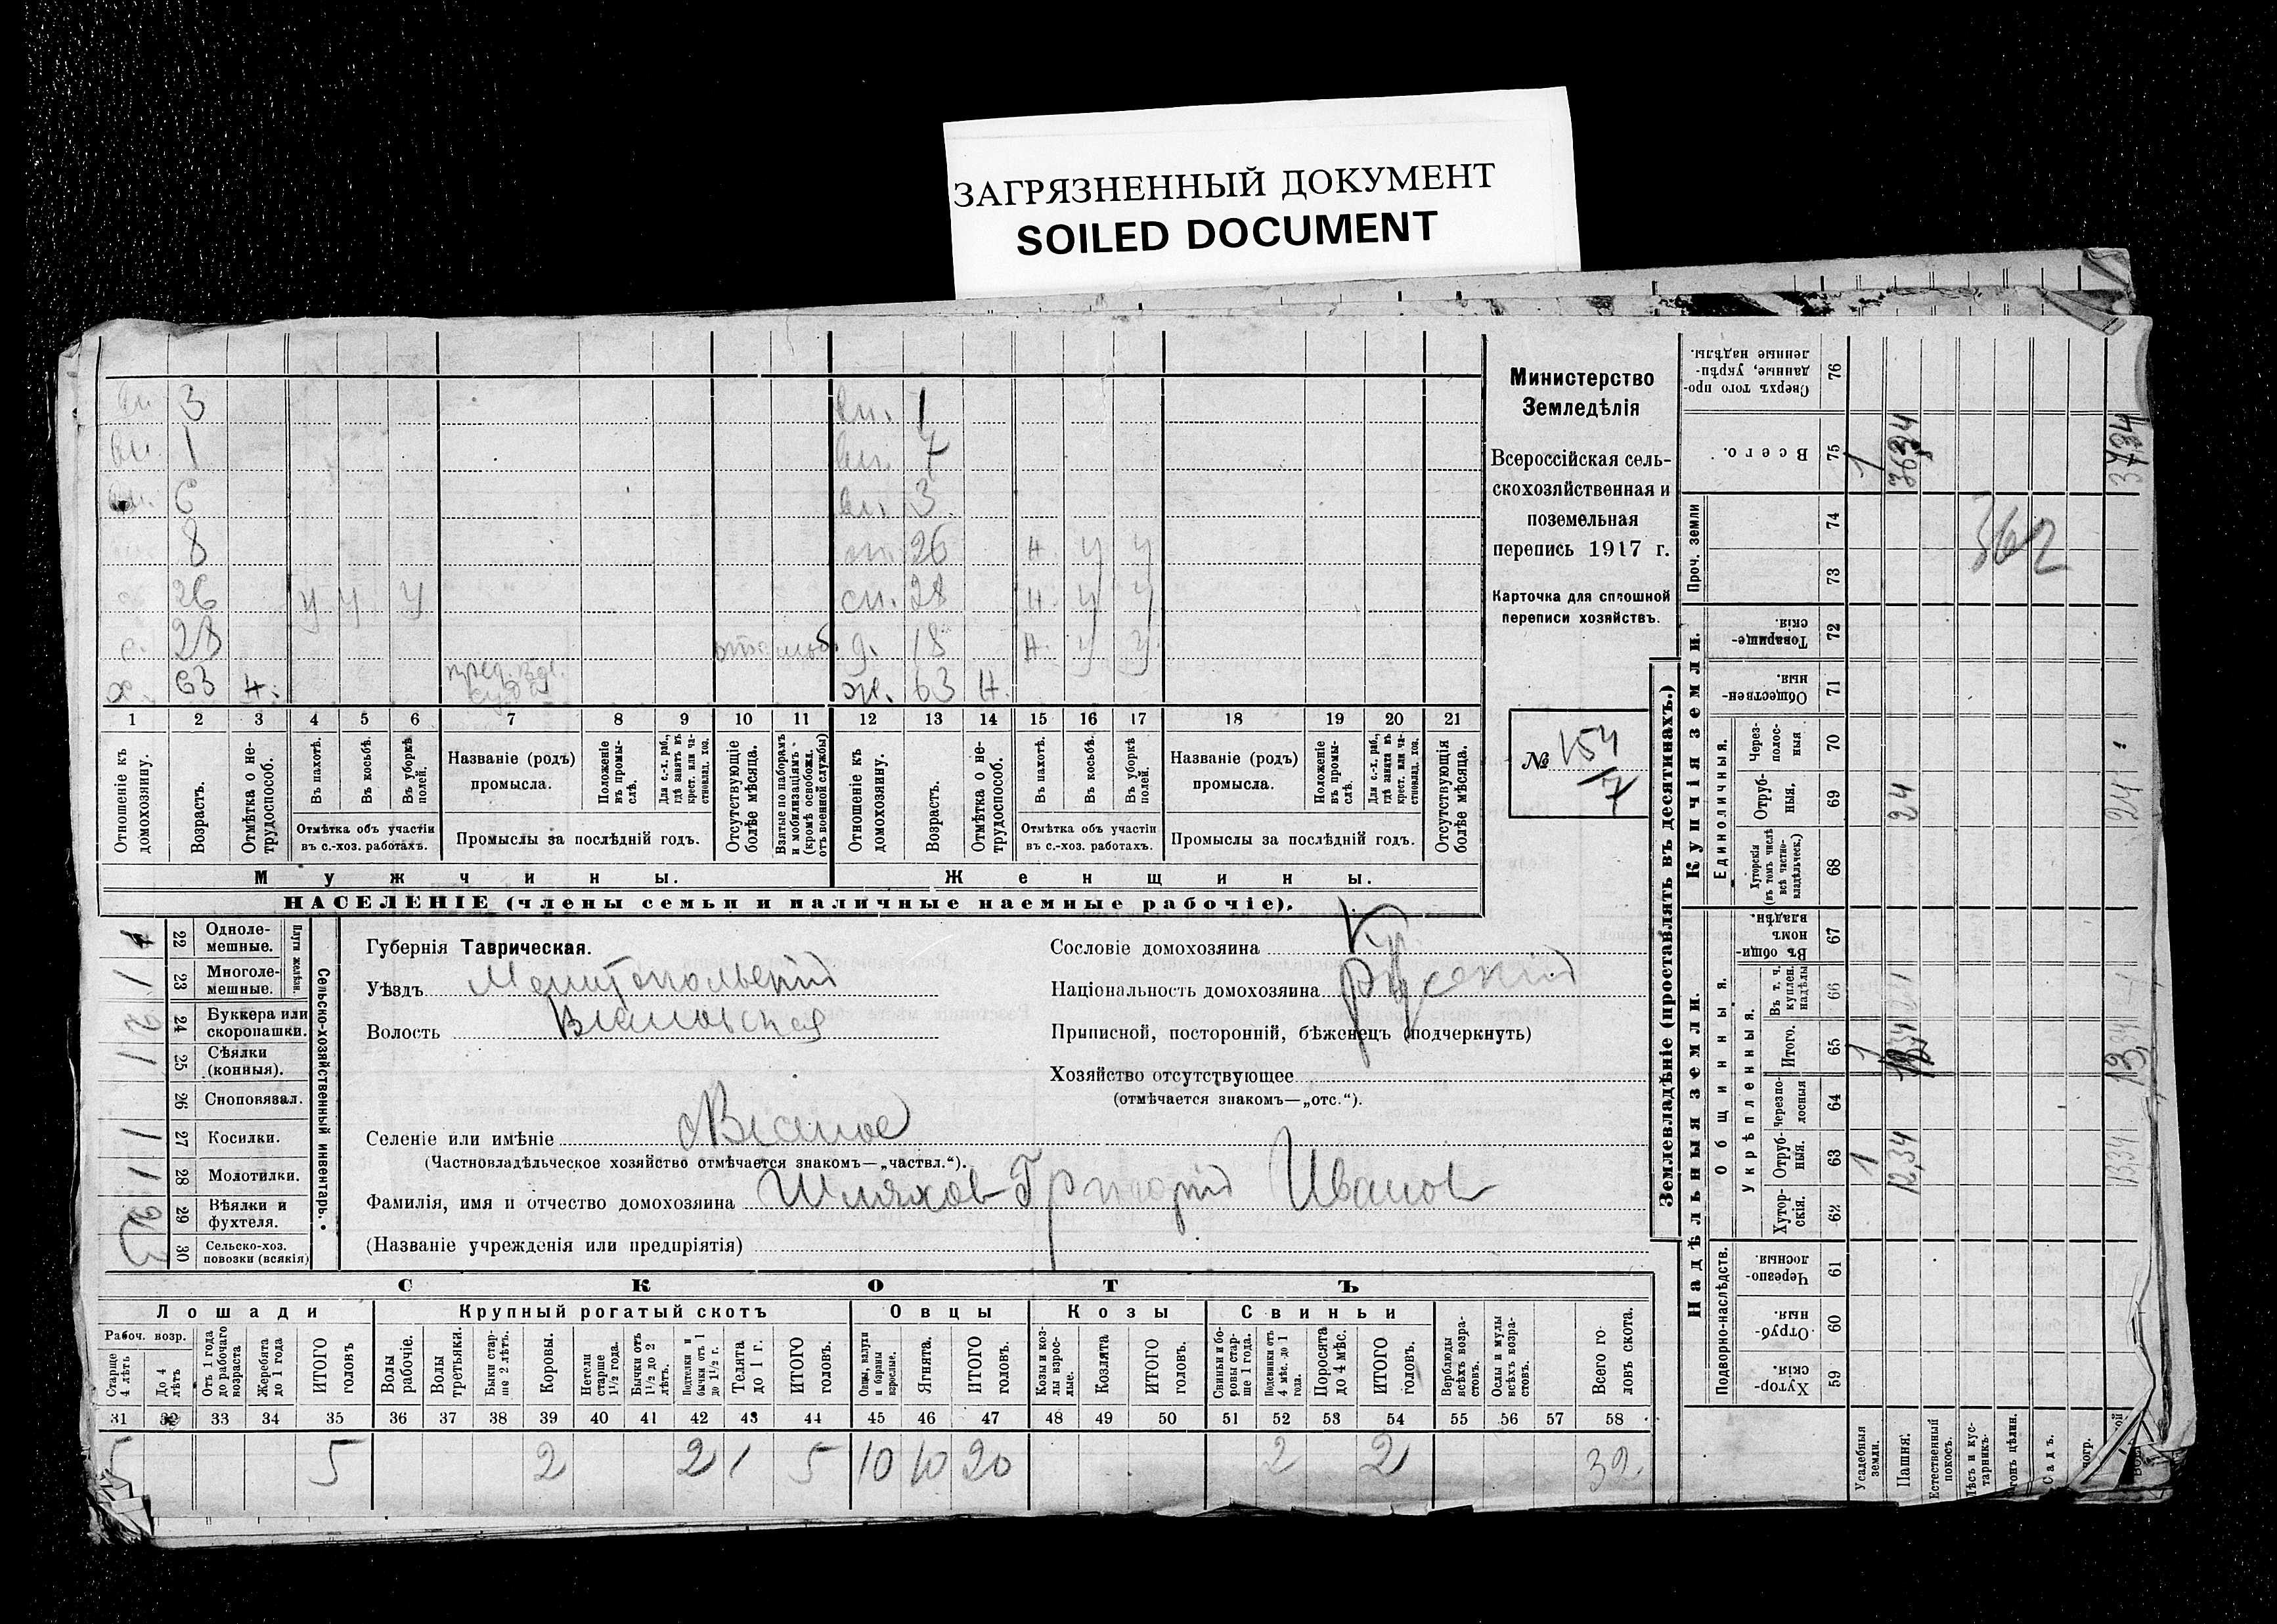 ЗАГРЯЗНЕННЫЙ ДОКУМЕНТ
SOILED DOCUMENT
Министерство
Земледѣлія
Всероссійская сель-
скохозяйственная и
поземельная
перепись 1917 г.
Карточка для сплошной
переписи хозяйствъ.
№ 154/7
вн. 3 вн. 1
вн. 1 вн. 7
вн. 6 вн. 3
8 26 н. у у
26 у у у сн. 28 н. у у
с. 28 моб. д. 18 н. у у
х. 63 н. ж. 63 н.
1 2 3 4 5 6 7 8 9 10 11 12 13 14 15 16 17 18 19 20 21
Отношеніе къ домохозяину.
Возрастъ.
Отмѣтка о не-трудоспособ.
Въ пахотѣ.
Въ косьбѣ.
Въ уборкѣ полей.
Отмѣтка объ участіи въ с.-хоз. работахъ.
Названіе (родъ) промысла.
Положеніе въ промы-слѣ.
Для с.-х. раб., гдѣ занятъ въ крест. или ча-стновлад. хоз.
Промыслы за послѣдній годъ.
Отсутствующіе болѣе мѣсяца.
Взятые по наборамъ и мобилизаціямъ (кромѣ освобожд. отъ военной службы)
Отношеніе къ домохозяину.
Возрастъ.
Отмѣтка о не-трудоспособ.
Въ пахотѣ.
Въ косьбѣ.
Въ уборкѣ полей.
Отмѣтка объ участіи въ с.-хоз. работахъ.
Названіе (родъ) промысла.
Положеніе въ промы-слѣ.
Для с.-х. раб., гдѣ занята въ крест. или ча-стновлад. хоз.
Промыслы за послѣдній годъ.
Отсутствующія болѣе мѣсяца.
Мужчины. Женщины.
НАСЕЛЕНІЕ (члены семьи и наличные наемные рабочіе).
Сельско-хозяйственный инвентарь.
Плуги желѣзн.
22 Одноле-мешные.
1 23 Многоле-мешные.
24 Буккера или скоропашки.
1 25 Сѣялки (конныя).
26 Сноповязал.
1 27 Косилки.
1 28 Молотилки.
29 Вѣялки и фухтеля.
30 Сельско-хоз. повозки (всякія)
Губернія Таврическая.
Уѣздъ Мелитопольскій
Волость
Селеніе или имѣніе
(Частновладѣльческое хозяйство отмѣчается знакомъ—„частвл.“).
Фамилія, имя и отчество домохозяина Шляхов Григорій Иванов
(Названіе учрежденія или предпріятія)
Сословіе домохозяина Кр.
Національность домохозяина Русскій
Приписной, посторонній, бѣженецъ (подчеркнуть)
Хозяйство отсутствующее
(отмѣчается знакомъ—„отс.“).
СКОТЪ
Лошади Крупный рогатый скотъ Овцы Козы Свиньи
Рабоч. возр.
Старше 4 лѣтъ
До 4 лѣтъ
Отъ 1 года до рабочаго возраста
Жеребята до 1 года
ИТОГО головъ
Волы рабочіе.
Волы третьяки.
Быки стар-ше 2 лѣтъ.
Коровы.
Нетели старше 1½ года.
Бычки отъ 1½ до 2 лѣтъ.
Подтелки и бычки отъ 1 до 1½ г.
Телята до 1 г.
ИТОГО головъ.
Овцы, валухи и бараны взрослые.
Ягнята.
ИТОГО головъ.
Козы и коз-лы взрос-лые.
Козлята.
ИТОГО головъ.
Свиньи и бо-ровы стар-ше 1 года.
Подсвинки отъ 4 мѣс. до 1 года.
Поросята до 4 мѣс.
ИТОГО головъ.
Верблюды всѣхъ возра-стовъ.
Ослы и мулы всѣхъ возра-стовъ.
Всего го-ловъ скота.
31 32 33 34 35 36 37 38 39 40 41 42 43 44 45 46 47 48 49 50 51 52 53 54 55 56 57 58
5 5 2 2 1 5 10 10 20 2 2 32.
Землевладѣніе (проставлять въ десятинахъ.)
Купчія земли.
Надѣльныя земли.
Сверхъ того про-данные, укрѣп-ленные надѣлы. 76
Всего. 75 1 37,34
Проч. земли 74 73 362
Товарище-скія. 72
Обществен-ныя. 71
Единоличныя.
Через-полос-ныя 70
Отруб-ныя. 69 24 24
Хуторскія (въ томъ числѣ всѣ частно-владѣльческ.) 68
Общинныя.
Въ общин-номъ владѣн. 67
Укрѣпленныя.
Въ т. ч. куплен. надѣлы 66
Итого. 65 1
Черезпо-лосныя 64
Отруб-ныя. 63 1 12,34 13,34
Хутор-скія. 62
Подворно-наслѣдств.
Черезпо-лосныя 61
Отруб-ныя. 60
Хутор-скія. 59
Усадебныя земли.
Пашня.
Естественный покосъ.
Лѣсъ и кус-тарникъ.
Садъ.